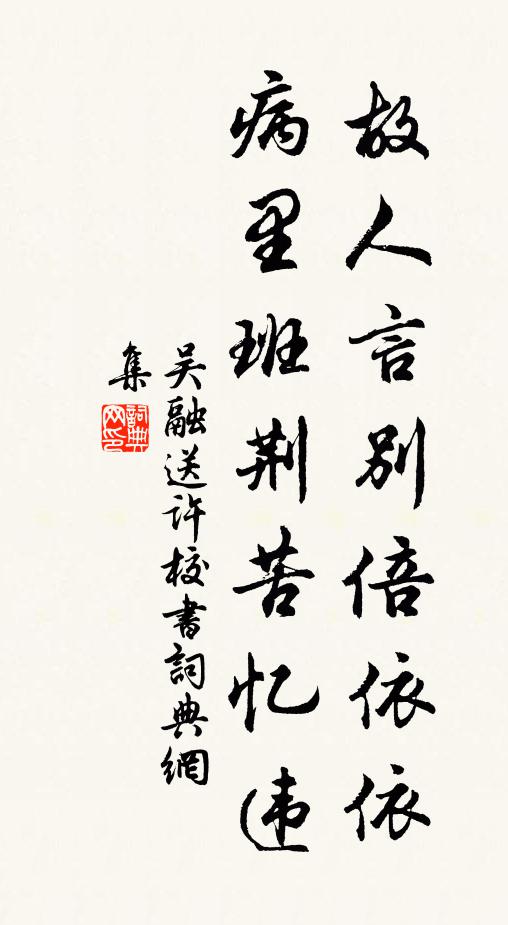 故人言别倍依依
病里班荆苦忆违
吴融送许校書詞典網
集
詞典
网印